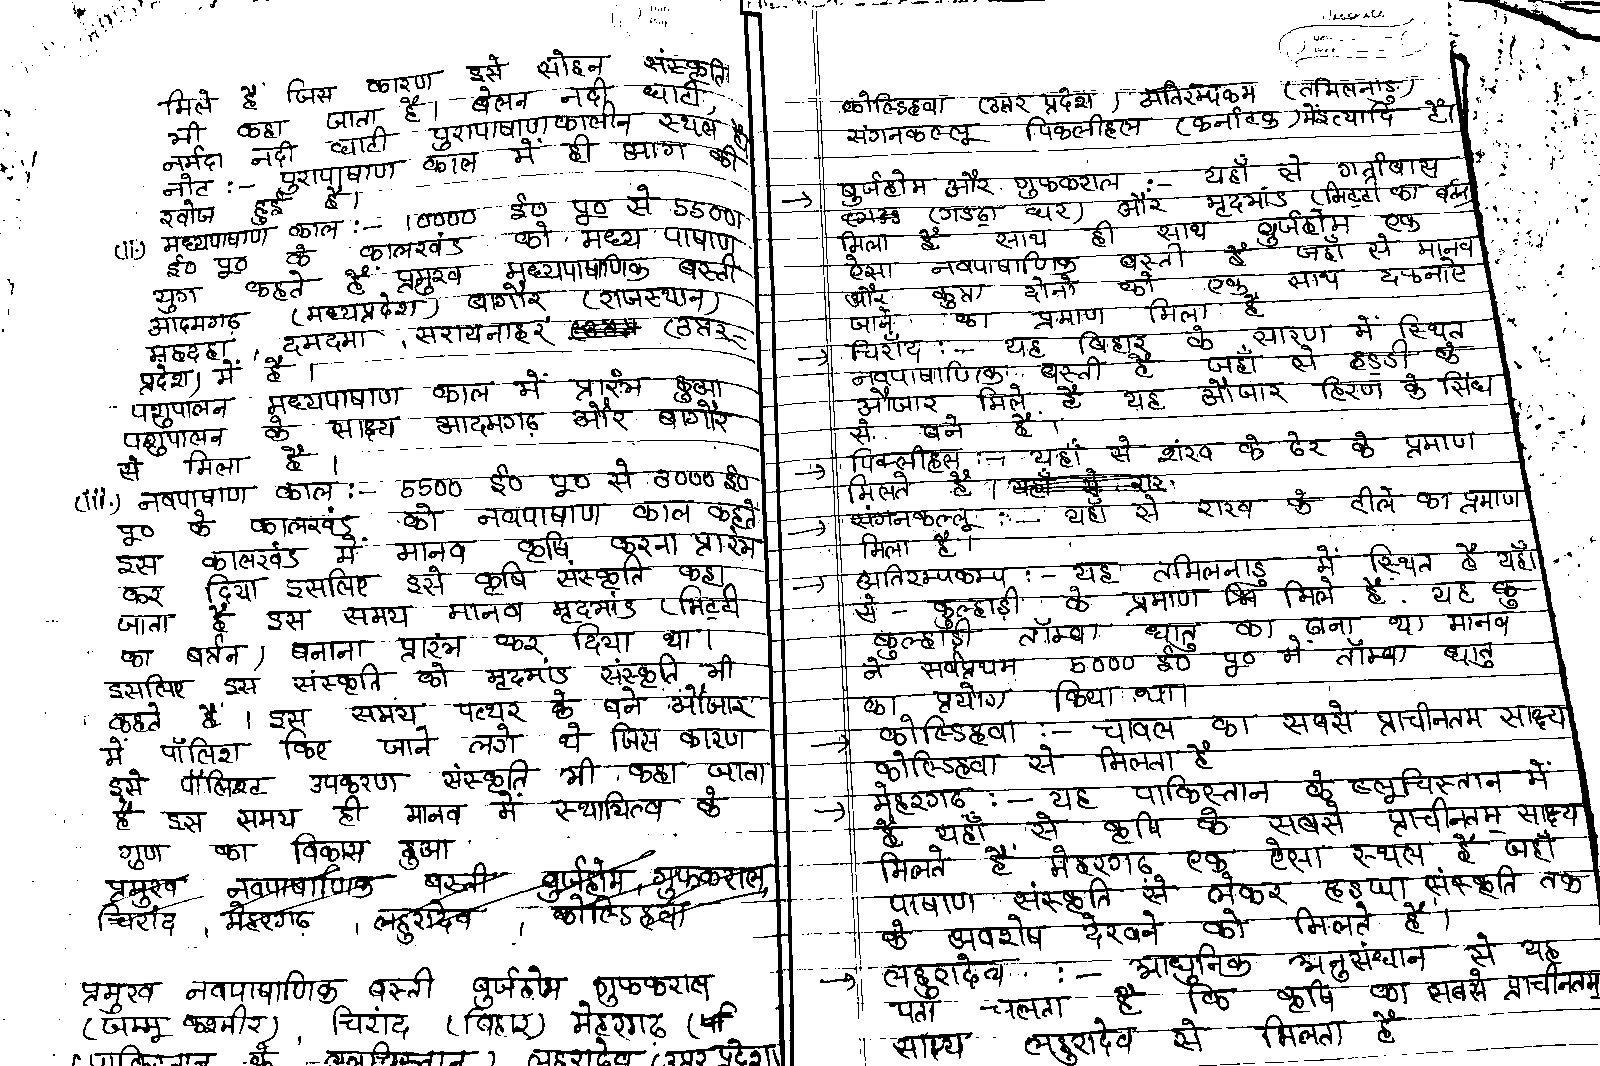 मिले हैं जिस कारण इसे सोहन संस्कृति
भी कहा जाता है। बेलन नदी घाटी,
नर्मदा नदी घाटी पुरापाषाणकालीन स्थल है
नोट :- पुरापाषाण काल में ही आग की
खोज हुई है।
(ii) मध्यपाषाण काल :- 10000 ई० पू० से 5500
ई० पू० के कालखंड को मध्य पाषाण
युग कहते हैं प्रमुख मध्यपाषाणिक बस्ती
आदमगढ़ (मध्यप्रदेश) बागौर (राजस्थान)
महदहा, दमदमा, सरायनाहर (उत्तर
प्रदेश) में है।
पशुपालन मध्यपाषाण काल में प्रारंभ हुआ
पशुपालन के साक्ष्य आदमगढ़ और बागौर
से मिला है।
(iii.) नवपाषाण काल :- 5500 ई० पू० से 3000 ई०
पू० के कालखंड को नवपाषाण काल कहते
इस कालखंड में मानव कृषि करना प्रारंभ
कर दिया इसलिए इसे कृषि संस्कृति कहा
जाता है इस समय मानव मृदभांड (मिट्टी
का बर्तन) बनाना प्रारंभ कर दिया था।
इसलिए इस संस्कृति को मृदभांड संस्कृति भी
कहते हैं। इस समय पत्थर के बने औजार
में पॉलिश किए जाने लगे थे जिस कारण
इसे पॉलिश्ट उपकरण संस्कृति भी कहा जाता
है इस समय ही मानव में स्थायित्व के
गुण का विकास हुआ
प्रमुख नवपाषाणिक बस्ती बुर्जहोम, गुफकराल,
चिरांद, मेहरगढ़, लहुरादेव, कोल्डिहवा
प्रमुख नवपाषाणिक बस्ती बुर्जहोम गुफकराल
(जम्मू कश्मीर), चिरांद (बिहार) मेहरगढ़
(पाकिस्तान के बलूचिस्तान) लहुरादेव (उत्तर प्रदेश)
कोल्डिहवा (उत्तर प्रदेश) अतिरम्पकम (तमिलनाडु)
संगनकल्लू पिकलीहल (कर्नाटक) में इत्यादि है।
→ बुर्जहोम और गुफकराल :- यहाँ से गर्तनिवास
(गड्ढा घर) और मृदभांड (मिट्टी का बर्तन
मिला है साथ ही साथ बुर्जहोम एक
ऐसा नवपाषाणिक बस्ती है जहाँ से मानव
और कुत्ता दोनों को एक साथ दफनाए
जाने का प्रमाण मिला है
→ चिरांद :- यह बिहार के सारण में स्थित
नवपाषाणिक बस्ती है जहाँ से हड्डी के
औजार मिले हैं यह औजार हिरण के सिंघ
से बने है।
→ पिक्लीहल :- यहाँ से शंख के ढेर के प्रमाण
मिलते है।
→ संगनकल्लू :- यहाँ से राख के टीले का प्रमाण
मिला है।
→ अतिरम्पकम्प :- यह तमिलनाडु में स्थित है यहाँ
से - कुल्हाड़ी के प्रमाण मिले है. यह कु
कुल्हाड़ी ताँम्बा धातु का बना था मानव
ने सर्वप्रथम 5000 ई० पू० में ताँम्बा धातु
का प्रयोग किया था।
→ कोल्डिहवा :- चावल का सबसे प्राचीनतम साक्ष्य
कोल्डिहवा से मिलता है
→ मेहरगढ़ :- यह पाकिस्तान के बलूचिस्तान में
है यहाँ से कृषि के सबसे प्राचीनतम् साक्ष्य
मिलते हैं मेहरगढ़ एक ऐसा स्थल है जहाँ
पाषाण संस्कृति से लेकर हड़प्पा संस्कृति तक
के अवशेष देखने को मिलते है।
→ लहुरादेव :- आधुनिक अनुसंधान से यह
पता चलता है कि कृषि का सबसे प्राचीनतम्
साक्ष्य लहुरादेव से मिलता है